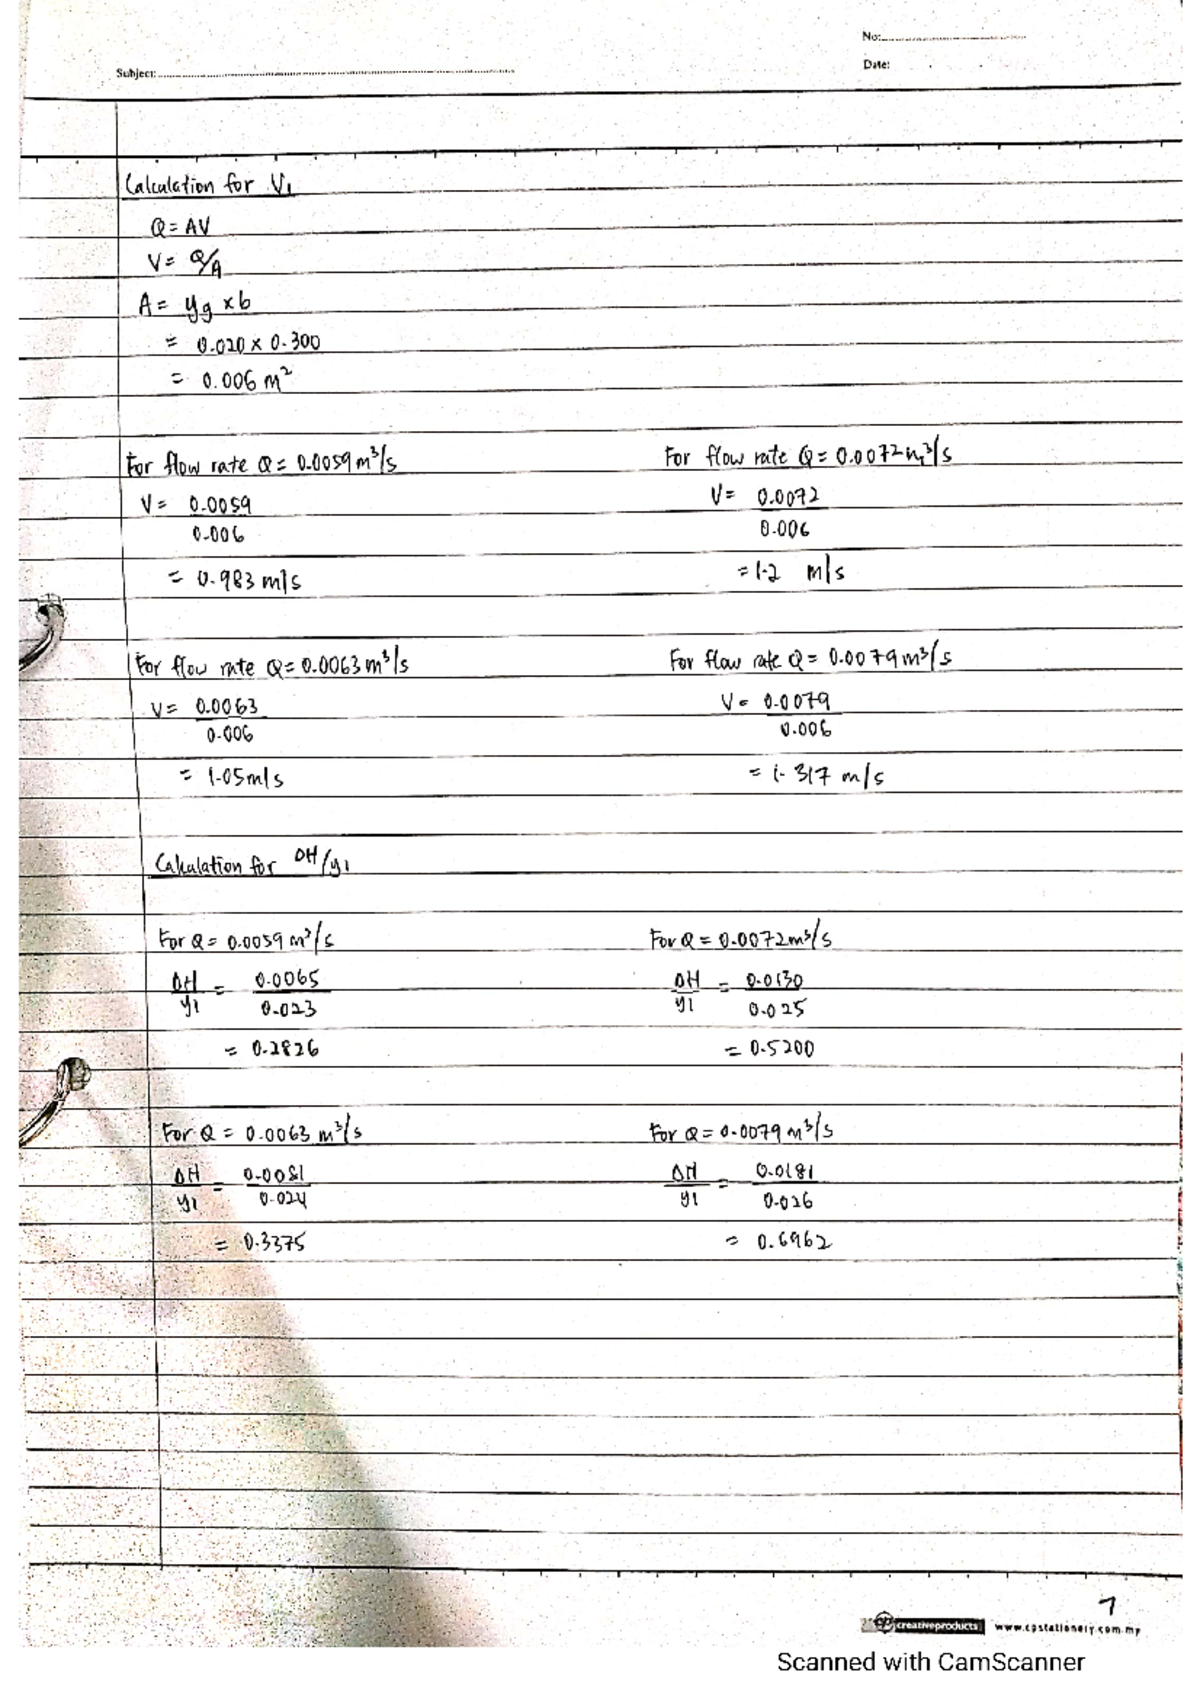 No:
Subject:
Date:
Calculation for V1
Q = AV
V = Q/A
A = yg × b
= 0.020 × 0.300
= 0.006 m²
For flow rate Q = 0.0059 m³/s
V = 0.0059
0.006
= 0.983 m/s
For flow rate Q = 0.0072 m³/s
V = 0.0072
0.006
= 1.2 m/s
For flow rate Q = 0.0063 m³/s
V = 0.0063
0.006
= 1.05 m/s
For flow rate Q = 0.0079 m³/s
V = 0.0079
0.006
= 1.317 m/s
Calculation for ΔH/y1
For Q = 0.0059 m³/s
ΔH = 0.0065
y1 0.023
= 0.2826
For Q = 0.0072 m³/s
ΔH = 0.0130
y1 0.025
= 0.5200
For Q = 0.0063 m³/s
ΔH = 0.0081
y1 0.024
= 0.3375
For Q = 0.0079 m³/s
ΔH = 0.0181
y1 0.026
= 0.6962
7
cp creativeproducts www.cpstationery.com.my
Scanned with CamScanner